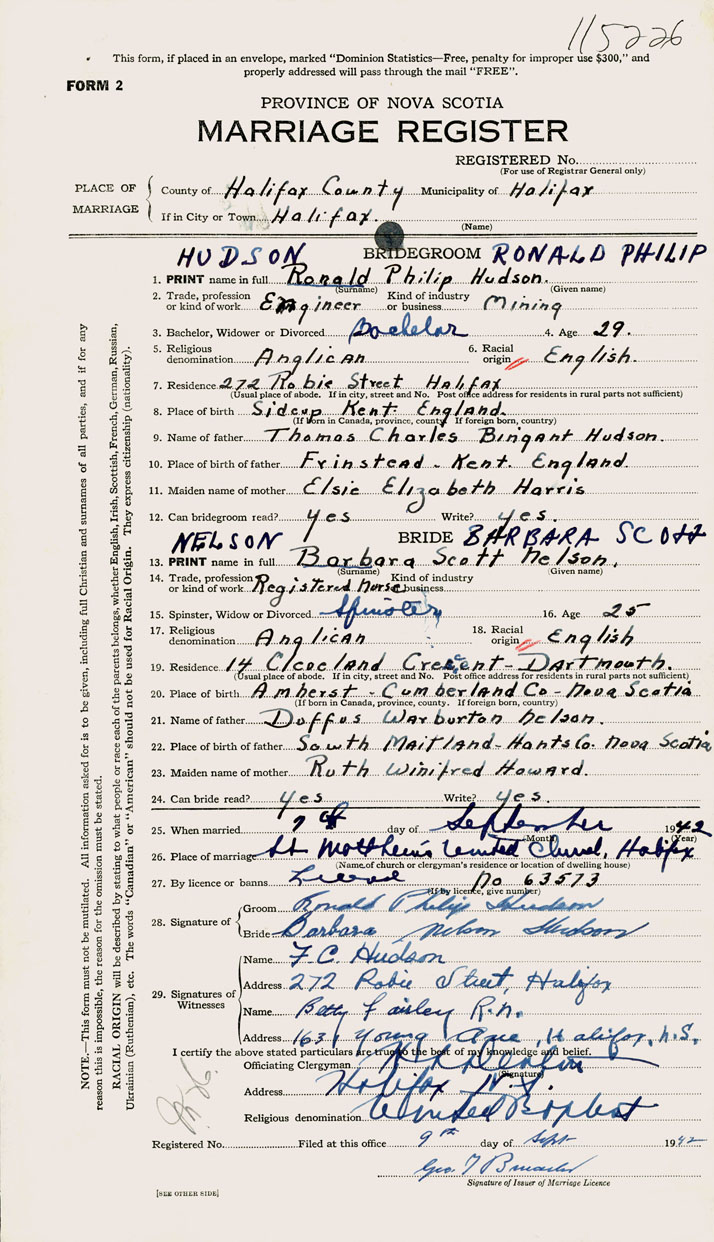 115226
This form, if placed in an envelope, marked "Dominion Statistics—Free, penalty for improper use $300," and
properly addressed will pass through the mail "FREE".
FORM 2
PROVINCE OF NOVA SCOTIA
MARRIAGE REGISTER
REGISTERED No.
(For use of Registrar General only)
PLACE OF MARRIAGE
County of Halifax County Municipality of Halifax
If in City or Town Halifax.
(Name)
HUDSON BRIDEGROOM RONALD PHILIP
1. PRINT name in full Ronald Philip Hudson.
(Surname) (Given name)
2. Trade, profession or kind of work Engineer Kind of industry or business Mining
3. Bachelor, Widower or Divorced Bachelor 4. Age 29.
5. Religious denomination Anglican 6. Racial origin English.
7. Residence 272 Robie Street Halifax
(Usual place of abode. If in city, street and No. Post office address for residents in rural parts not sufficient)
8. Place of birth Sidcup Kent England.
(If born in Canada, province, county. If foreign born, country)
9. Name of father Thomas Charles Bingant Hudson.
10. Place of birth of father Frinstead - Kent. England.
11. Maiden name of mother Elsie Elizabeth Harris
12. Can bridegroom read? yes Write? yes.
NELSON BRIDE BARBARA SCOTT
13. PRINT name in full Barbara Scott Nelson.
(Surname) (Given name)
14. Trade, profession or kind of work Registered Nurse Kind of industry or business
15. Spinster, Widow or Divorced Spinster 16. Age 25
17. Religious denomination Anglican 18. Racial origin English
19. Residence 14 Cleveland Crescent - Dartmouth.
(Usual place of abode. If in city, street and No. Post office address for residents in rural parts not sufficient)
20. Place of birth Amherst - Cumberland Co - Nova Scotia
(If born in Canada, province, county. If foreign born, country)
21. Name of father Duffus Warburton Nelson.
22. Place of birth of father South Maitland - Hants Co. Nova Scotia
23. Maiden name of mother Ruth Winifred Howard.
24. Can bride read? yes Write? yes.
25. When married 7th day of September 1942
(Month) (Year)
26. Place of marriage St Matthew's United Church, Halifax
(Name of church or clergyman's residence or location of dwelling house)
27. By licence or banns No 63573
(If by licence, give number)
28. Signature of
Groom Ronald Philip Hudson
Bride Barbara Nelson Hudson
29. Signatures of Witnesses
Name F. C. Hudson
Address 272 Robie Street, Halifax
Name Betty Fairley R.N.
Address 163 Young Ave, Halifax, N.S.
I certify the above stated particulars are true to the best of my knowledge and belief.
Officiating Clergyman
(Signature)
Address Halifax N.S.
Religious denomination United Baptist
Registered No. Filed at this office 9th day of Sept 1942
Geo. T
Signature of Issuer of Marriage Licence
[SEE OTHER SIDE]
NOTE.—This form must not be mutilated. All information asked for is to be given, including full Christian and surnames of all parties, and if for any
reason this is impossible, the reason for the omission must be stated.
RACIAL ORIGIN will be described by stating to what people or race each of the parents belongs, whether English, Irish, Scottish, French, German, Russian,
Ukrainian (Ruthenian), etc. The words "Canadian" or "American" should not be used for Racial Origin. They express citizenship (nationality).